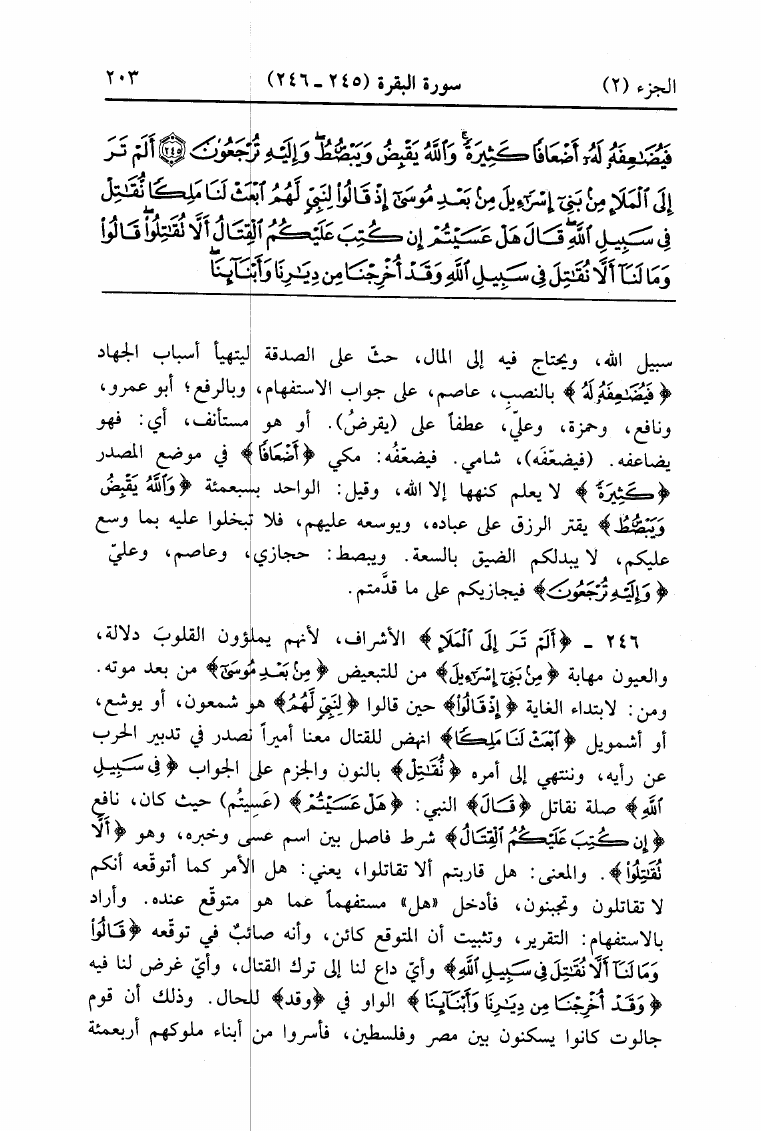 الجزء (٢) سورة البقرة (٢٤٥ ـ ٢٤٦) ٢٠٣
فَيُضَٰعِفَهُۥ لَهُۥٓ أَضْعَافًا كَثِيرَةً ۚ وَٱللَّهُ يَقْبِضُ وَيَبْصُۜطُ وَإِلَيْهِ تُرْجَعُونَ ﴿٢٤٥﴾ أَلَمْ تَرَ
إِلَى ٱلْمَلَإِ مِنۢ بَنِىٓ إِسْرَٰٓءِيلَ مِنۢ بَعْدِ مُوسَىٰٓ إِذْ قَالُوا۟ لِنَبِىٍّ لَّهُمُ ٱبْعَثْ لَنَا مَلِكًا نُّقَٰتِلْ
فِى سَبِيلِ ٱللَّهِ ۖ قَالَ هَلْ عَسَيْتُمْ إِن كُتِبَ عَلَيْكُمُ ٱلْقِتَالُ أَلَّا تُقَٰتِلُوا۟ ۖ قَالُوا۟
وَمَا لَنَآ أَلَّا نُقَٰتِلَ فِى سَبِيلِ ٱللَّهِ وَقَدْ أُخْرِجْنَا مِن دِيَٰرِنَا وَأَبْنَآئِنَا ۖ
سبيل الله، ويحتاج فيه إلى المال، حثّ على الصدقة ليتهيأ أسباب الجهاد
﴿فَيُضَٰعِفَهُۥ لَهُۥ﴾ بالنصبِ، عاصم، على جواب الاستفهام، وبالرفع؛ أبو عمرو،
ونافع، وحمزة، وعليّ، عطفاً على (يقرضُ). أو هو مستأنف، أي: فهو
يضاعفه. (فيضعّفَه)، شامي. فيضعّفُه: مكي ﴿أَضْعَافًا﴾ في موضع المصدر
﴿كَثِيرَةً﴾ لا يعلم كنهها إلا الله، وقيل: الواحد بسبعمئة ﴿وَٱللَّهُ يَقْبِضُ
وَيَبْصُۜطُ﴾ يقتر الرزق على عباده، ويوسعه عليهم، فلا تبخلوا عليه بما وسع
عليكم، لا يبدلكم الضيق بالسعة. ويبصط: حجازي، وعاصم، وعليّ
﴿وَإِلَيْهِ تُرْجَعُونَ﴾ فيجازيكم على ما قدَّمتم.
٢٤٦ ـ ﴿أَلَمْ تَرَ إِلَى ٱلْمَلَإِ﴾ الأشراف، لأنهم يملؤون القلوبَ دلالة،
والعيون مهابة ﴿مِنۢ بَنِىٓ إِسْرَٰٓءِيلَ﴾ من للتبعيض ﴿مِنۢ بَعْدِ مُوسَىٰٓ﴾ من بعد موته.
ومن: لابتداء الغاية ﴿إِذْ قَالُوا۟﴾ حين قالوا ﴿لِنَبِىٍّ لَّهُمُ﴾ هو شمعون، أو يوشع،
أو أشمويل ﴿ٱبْعَثْ لَنَا مَلِكًا﴾ انهض للقتال معنا أميراً نصدر في تدبير الحرب
عن رأيه، وننتهي إلى أمره ﴿نُّقَٰتِلْ﴾ بالنون والجزم على الجواب ﴿فِى سَبِيلِ
ٱللَّهِ﴾ صلة نقاتل ﴿قَالَ﴾ النبي: ﴿هَلْ عَسَيْتُمْ﴾ (عَسِيتُم) حيث كان، نافع
﴿إِن كُتِبَ عَلَيْكُمُ ٱلْقِتَالُ﴾ شرط فاصل بين اسم عسى وخبره، وهو ﴿أَلَّا
تُقَٰتِلُوا۟﴾. والمعنى: هل قاربتم ألا تقاتلوا، يعني: هل الأمر كما أتوقّعه أنكم
لا تقاتلون وتجبنون، فأدخل «هل» مستفهماً عما هو متوقّع عنده. وأراد
بالاستفهام: التقرير، وتثبيت أن المتوقع كائن، وأنه صائبٌ في توقعه ﴿قَالُوا۟
وَمَا لَنَآ أَلَّا نُقَٰتِلَ فِى سَبِيلِ ٱللَّهِ﴾ وأيّ داع لنا إلى ترك القتال، وأيّ غرض لنا فيه
﴿وَقَدْ أُخْرِجْنَا مِن دِيَٰرِنَا وَأَبْنَآئِنَا﴾ الواو في ﴿وقد﴾ للحال. وذلك أن قوم
جالوت كانوا يسكنون بين مصر وفلسطين، فأسروا من أبناء ملوكهم أربعمئة